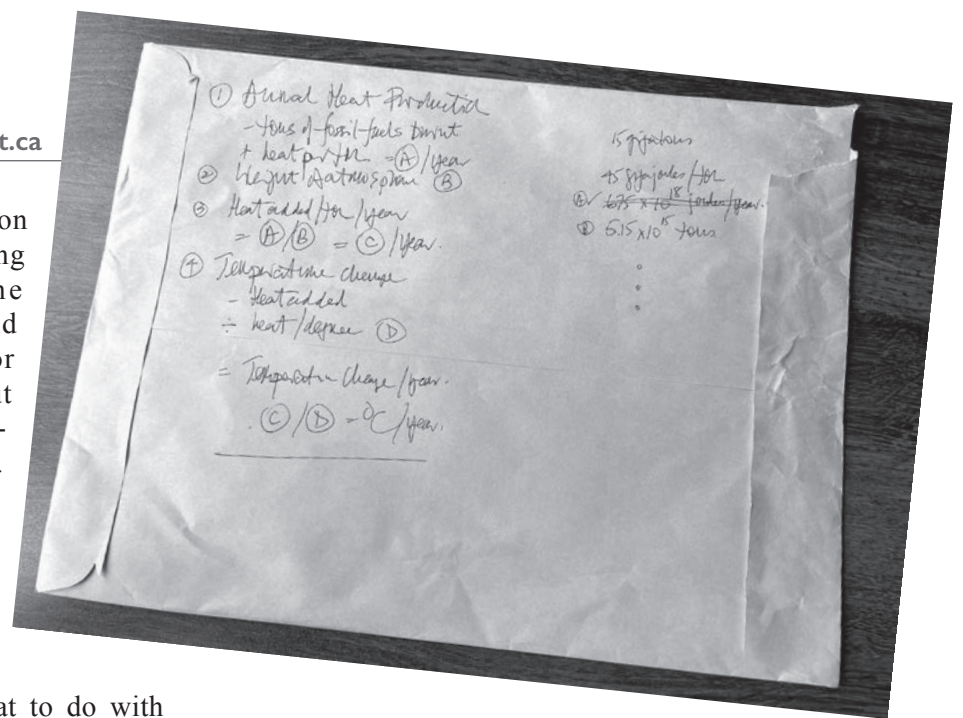 t.ca
on
ng
ne
d
or
ut
-
① Annual Heat Production
- tons of fossil-fuels burnt
+ heat per ton = Ⓐ/year
② Weight of atmosphere Ⓑ
③ Heat added/ton/year
= Ⓐ/Ⓑ = Ⓒ/year.
④ Temperature change
- Heat added
÷ heat/degree Ⓓ
= Temperature Change/year.
Ⓒ/Ⓓ = °C/year.
15 gigatons
45 gigajoules/ton
Ⓐ 675 x 10^18 joules/year.
Ⓑ 5.15 x 10^15 tons
at to do with